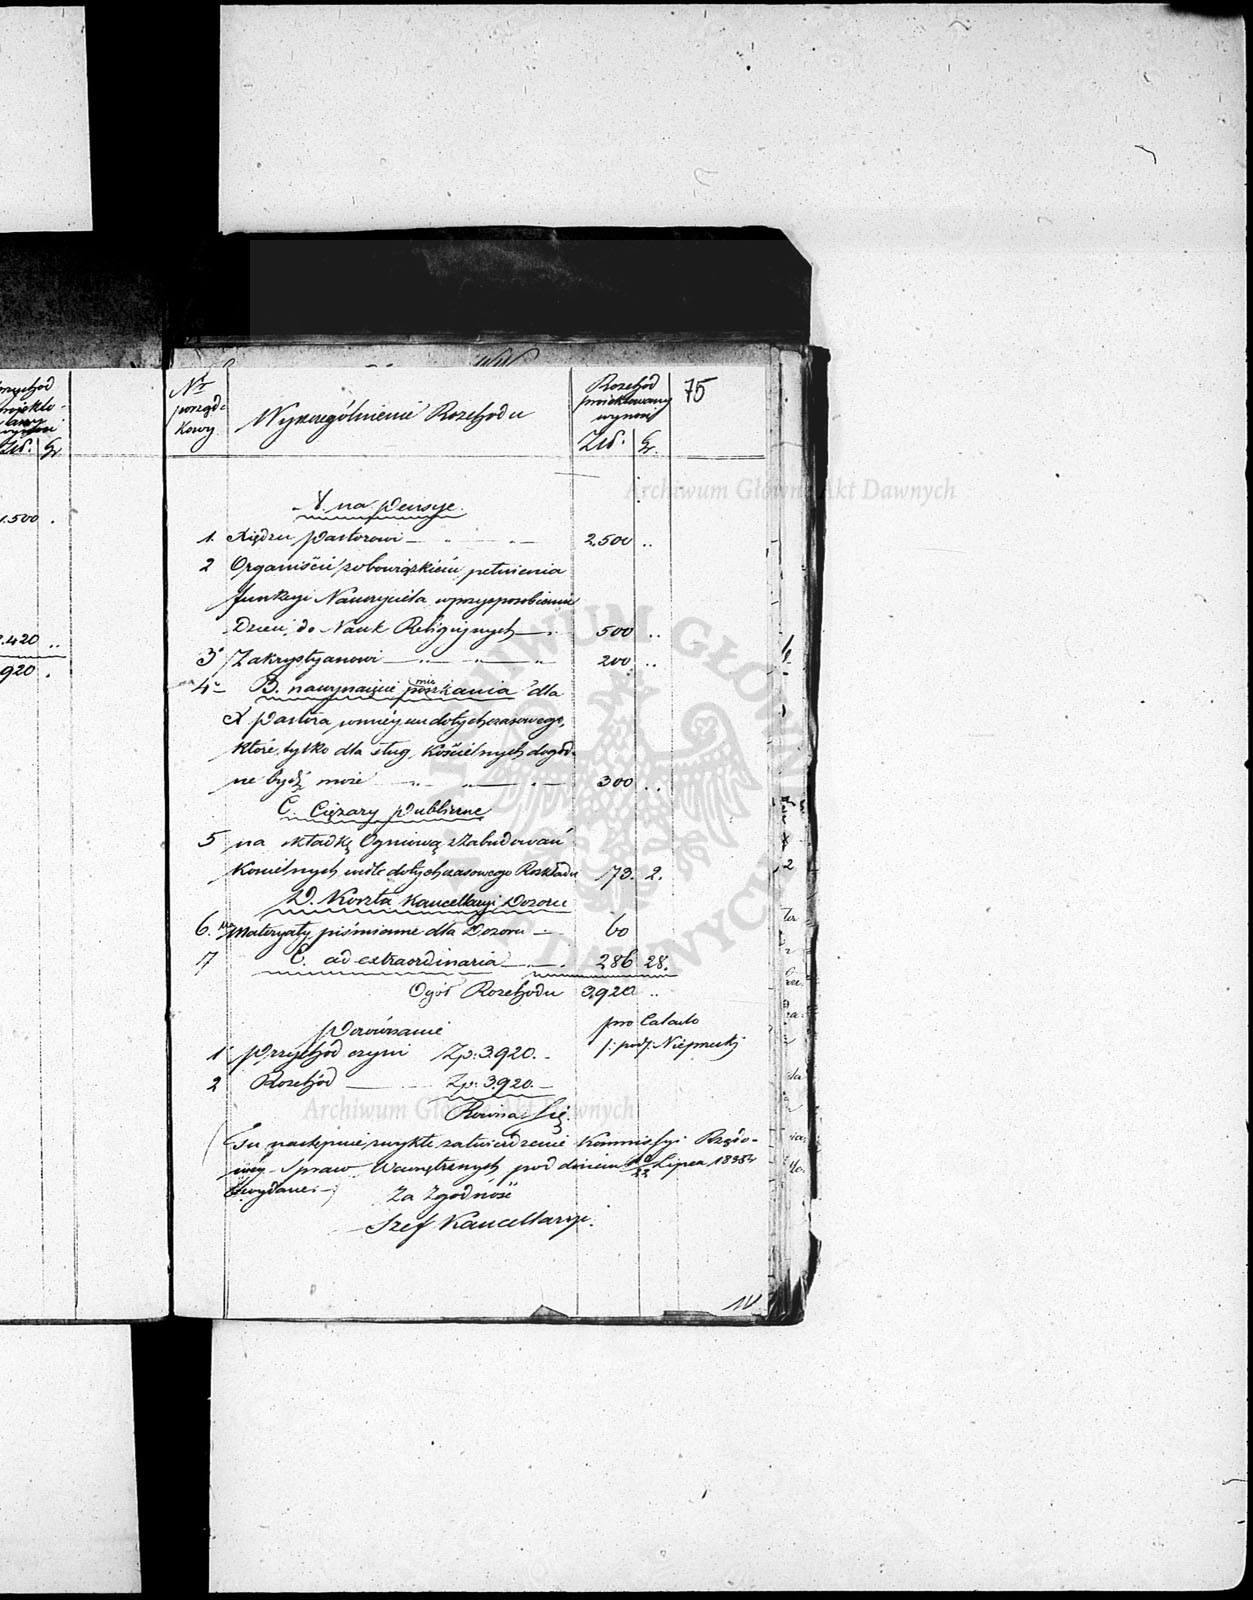 przychód
Złd. gr
1.500 .
2.420 ..
920 .
Nr
porząd-
kowy
Wyszczególnienie Rozchodu
Rozchód
proiektowany
wynosi
Złd. gr.
75
A. na Pensye.
1. Xiędzu Pastorowi 2,500 ..
2 Organiście zobowiązkiem pełnienia
funkcyi Nauczyciela w przysposobieniu
Dzieci, do Nauk Religijnych 500 ..
3 Zakrystyanowi 200 ..
4 B. na wynajęcie pomieszkania dla
X Pastora w miejscu dotychczasowego,
które, tylko dla sług Kościelnych dogod-
ne bydź może 300 ..
C. Ciężary Publiczne
5 na składkę Ogniową z Zabudowań
Kościelnych wedle dotychczasowego Rozkładu 73. 2.
D. Koszta Kancellaryi Dozoru
6. na Materyały piśmienne dla Dozoru 60
7 E. ad extraordinaria 286 28.
Ogół Rozchodu 3,920 ..
Porównanie
pro Calculo
1 Przychód czyni Zp: 3,920.
/: podp: Niepmukj
2 Rozchód Zp: 3,920.
Równa Się.
Tu następuie zwykłe zatwierdzenie Kommissyi Rządo-
wéy Spraw Wewnętrznych pod dniem 22 Lipca 1835r
wydane
Za Zgodność
Szef Kancellaryi.
Archiwum Główne Akt Dawnych
Archiwum Główne Akt Dawnych
ARCHIWUM GŁÓWNE AKT DAWNYCH